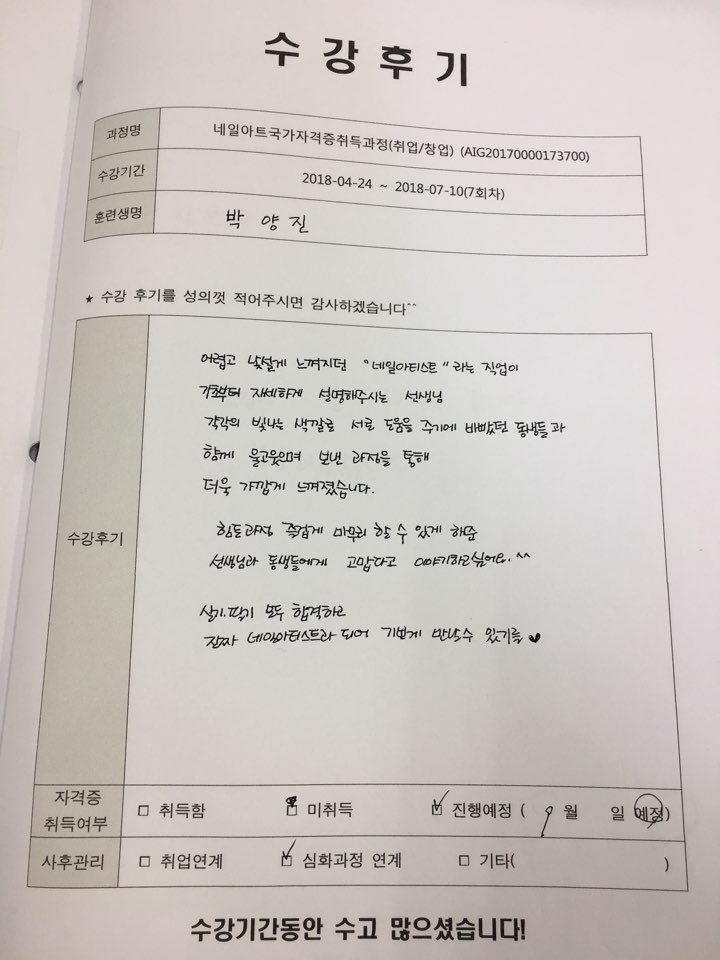 수강후기
과정명 네일아트국가자격증취득과정(취업/창업) (AIG20170000173700)
수강기간 2018-04-24 ~ 2018-07-10(7회차)
훈련생명 박양진
★ 수강 후기를 성의껏 적어주시면 감사하겠습니다^^
어렵고 낯설게 느껴지던 "네일아티스트"라는 직업이
기초부터 자세하게 설명해주시는 선생님
각각의 빛나는 색깔로 서로 도움을 주기에 바빴던 동생들과
함께 울고웃으며 보낸 과정을 통해
더욱 가깝게 느껴졌습니다.
수강후기
힘든과정 즐겁게 마무리 할 수 있게 해준
선생님과 동생들에게 고맙다고 이야기하고싶어요. ^^
실기.필기 모두 합격하고
진짜 네일아티스트가 되어 기쁘게 만날수 있기를 ♥
자격증 취득여부 □ 취득함 □ 미취득 ☑ 진행예정 ( 9월 일 예정)
사후관리 □ 취업연계 ☑ 심화과정 연계 □ 기타( )
수강기간동안 수고 많으셨습니다!